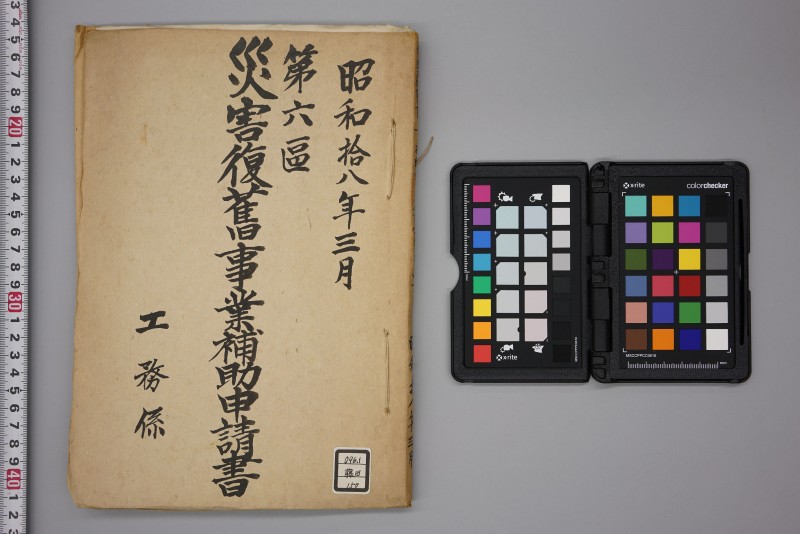 昭和拾八年三月
第六區
災害復舊事業補助申請書
工務係
096.1
藤田
157
x-rite
x-rite
colorchecker
MSCCPPCC0616